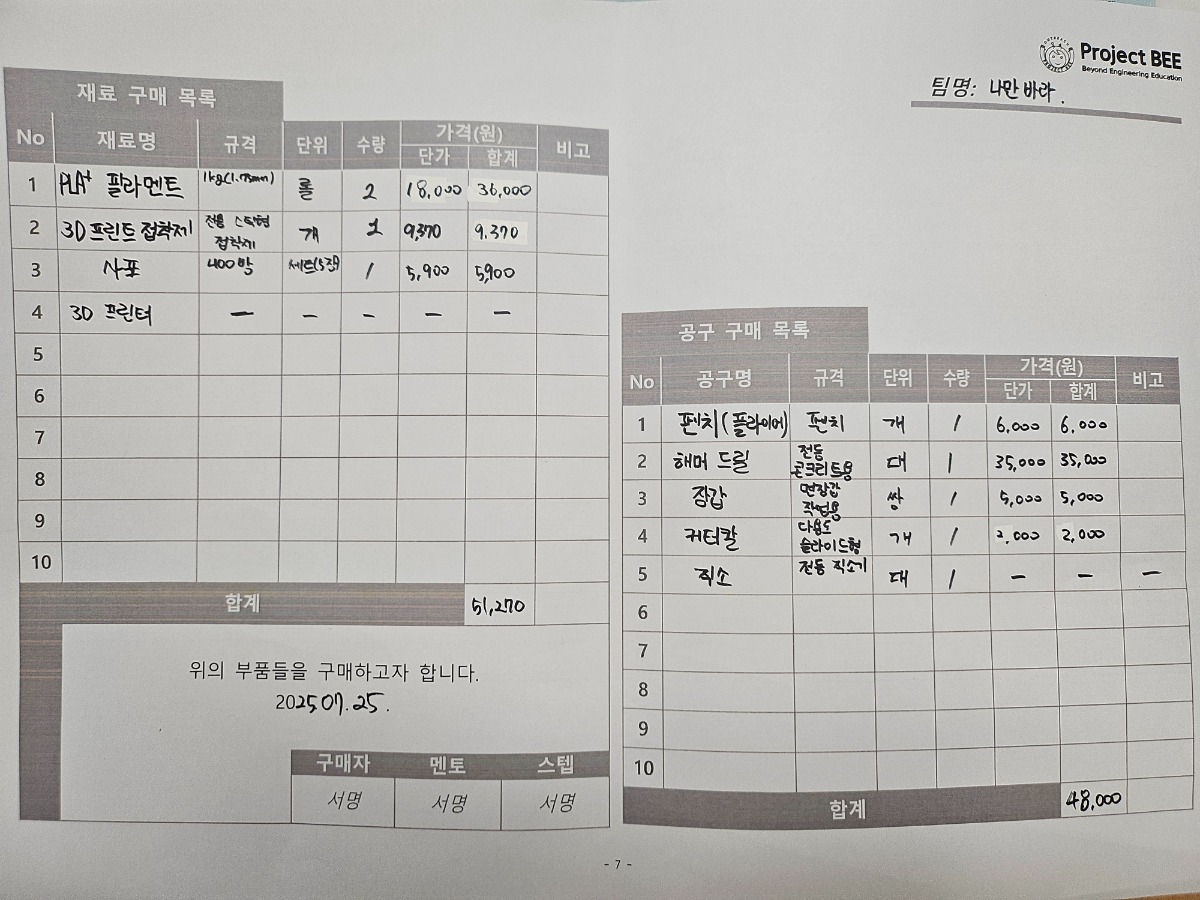 Project BEE
Beyond Engineering Education
팀명: 나만 바라.
재료 구매 목록
No 재료명 규격 단위 수량 가격(원) 비고
단가 합계
1 PLA+ 필라멘트 1kg(1.75mm) 롤 2 18,000 36,000
2 3D프린트 접착제 전용 스틱형 접착제 개 1 9,370 9.370
3 사포 400방 세트(5장) 1 5,900 5,900
4 3D 프린터 — — — — —
5
6
7
8
9
10
합계 51,270
위의 부품들을 구매하고자 합니다.
2025.07.25.
구매자 멘토 스텝
서명 서명 서명
공구 구매 목록
No 공구명 규격 단위 수량 가격(원) 비고
단가 합계
1 펜치(플라이어) 펜치 개 1 6,000 6,000
2 해머 드릴 전동 콘크리트용 대 1 35,000 35,000
3 장갑 면장갑 작업용 쌍 1 5,000 5,000
4 커터칼 다용도 슬라이드형 개 1 2,000 2,000
5 직소 전동 직소기 대 1 — — —
6
7
8
9
10
합계 48,000
- 7 -